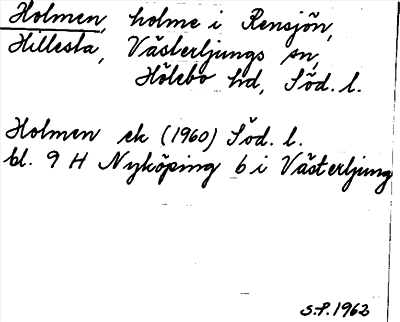 Holmen, holme i Rensjön,
Hillesta, Västerljungs sn,
Hölebo hd, Söd. l.
Holmen ek (1960) Söd. l.
bl. 9 H Nyköping 6 i Västerljung
S.P. 1962